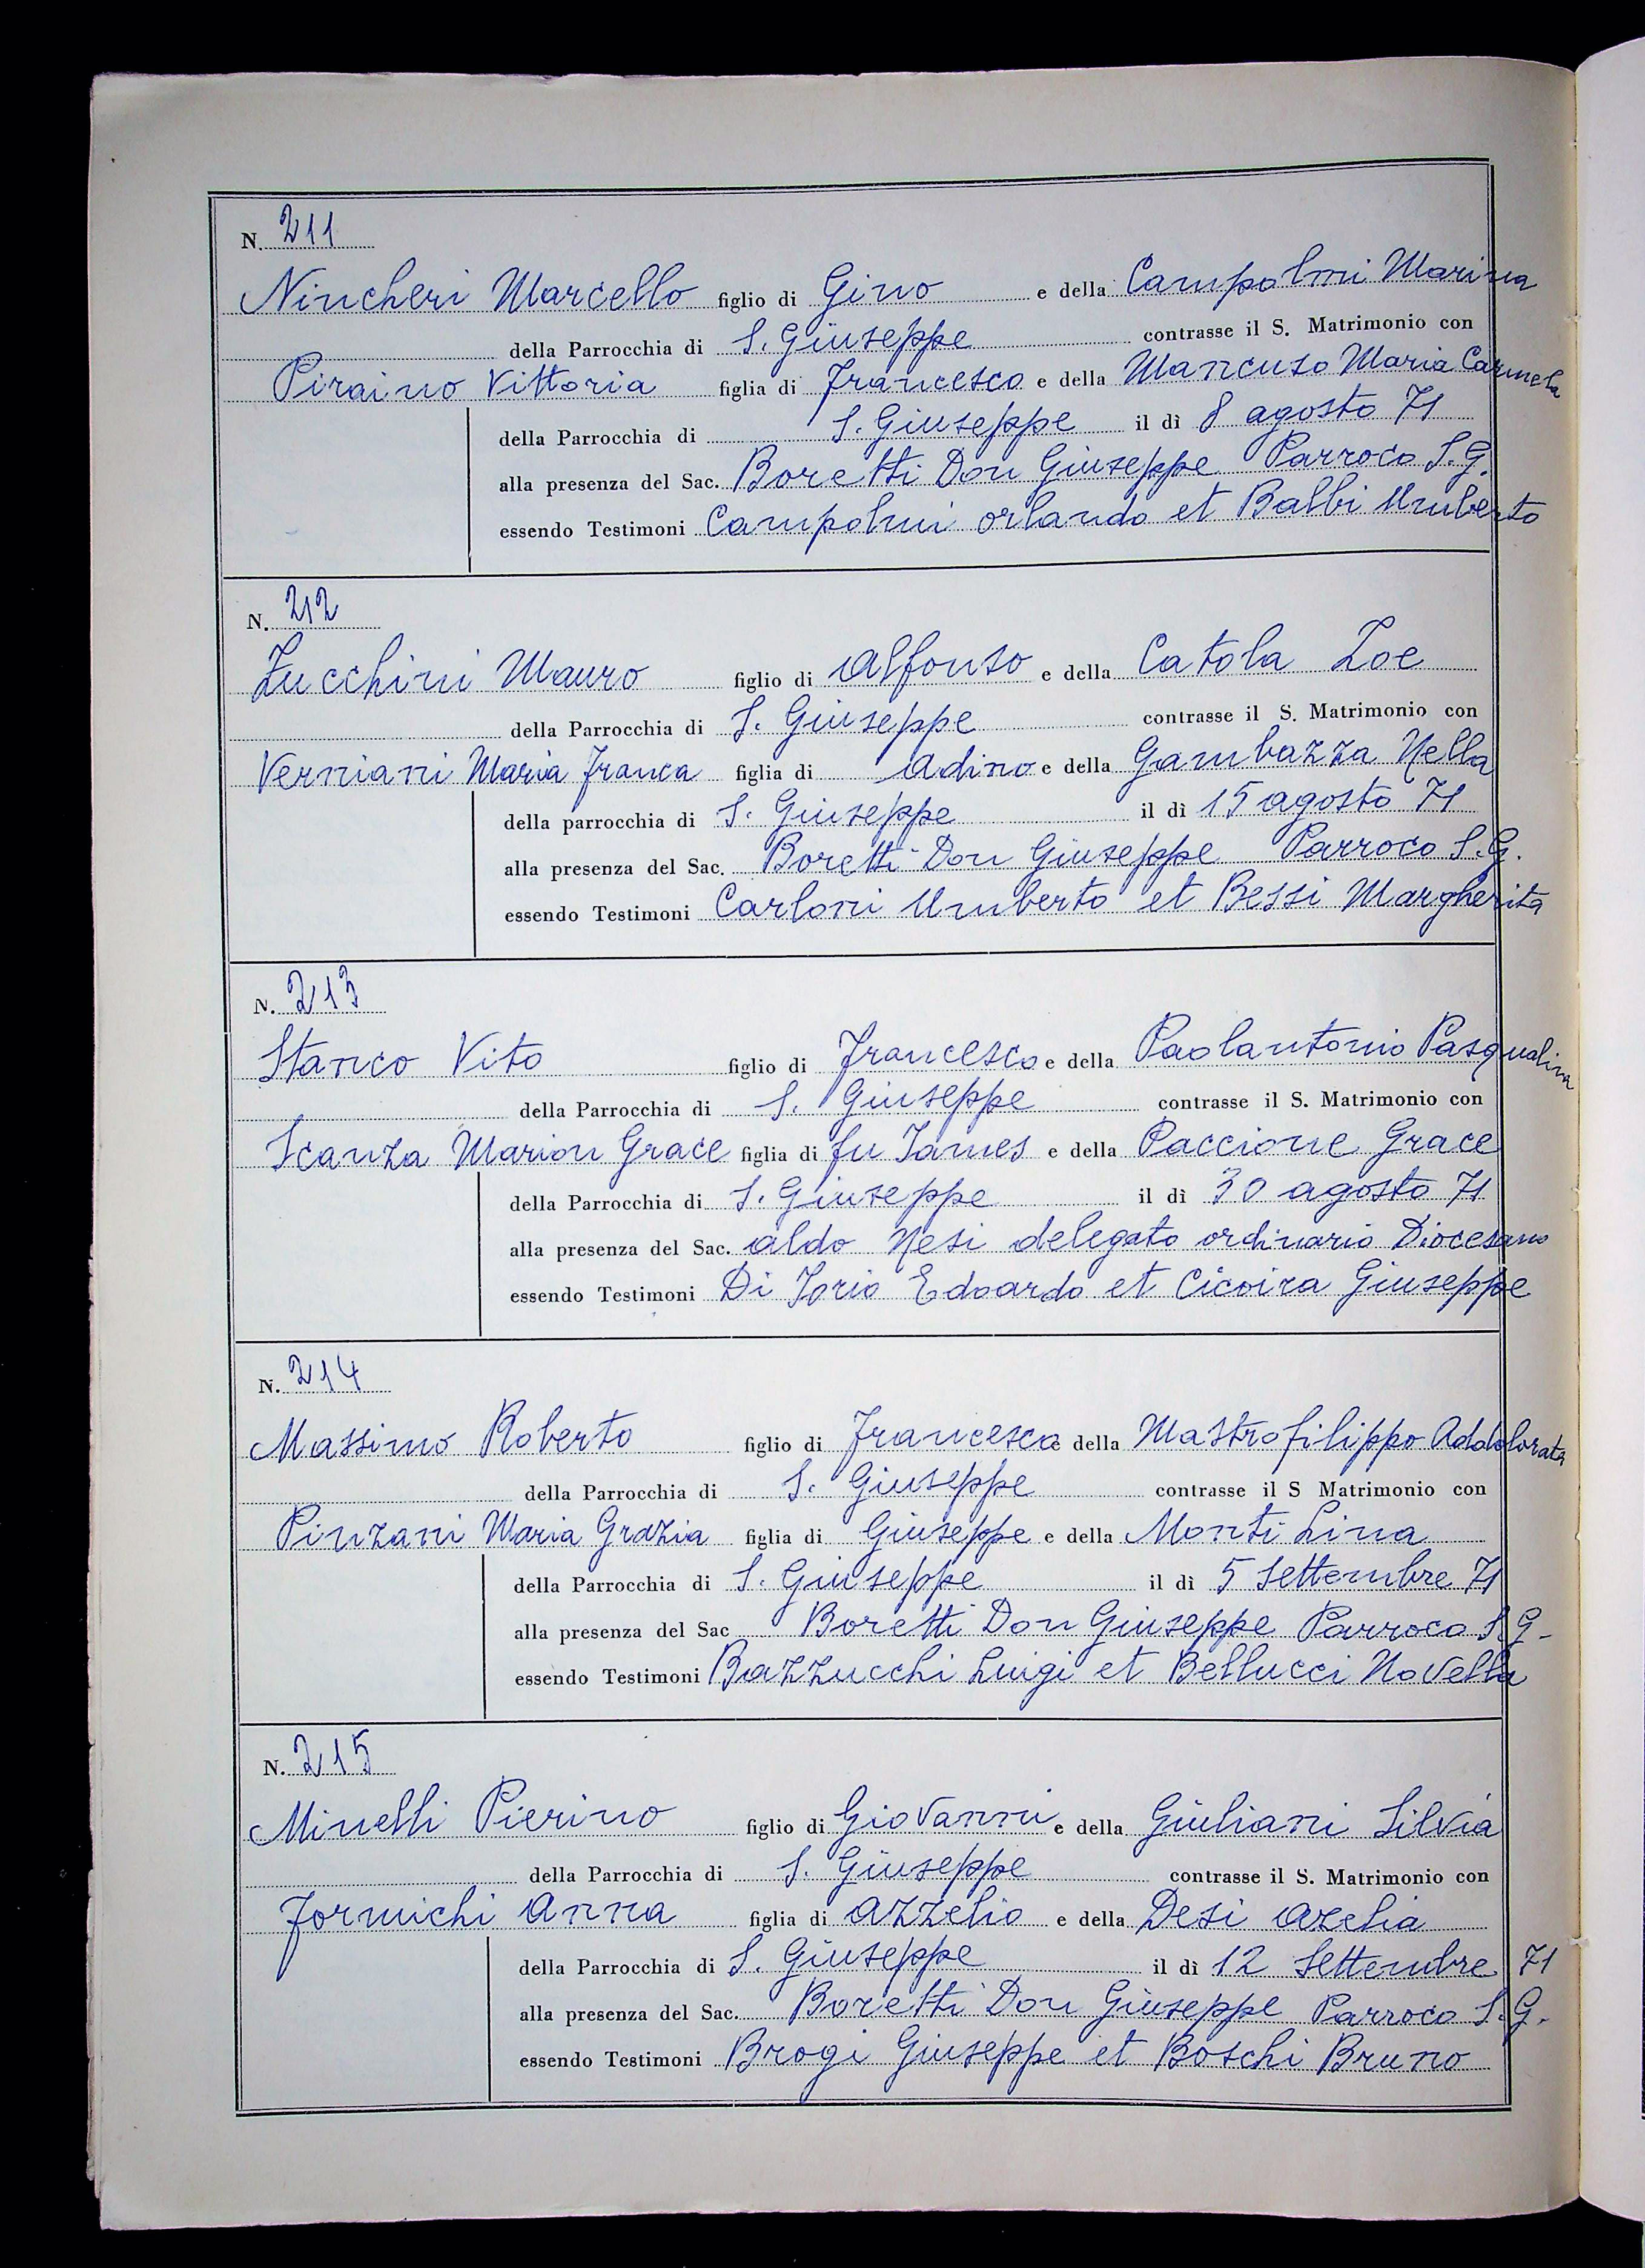 N. 211
Nincheri Marcello figlio di Gino e della Campolmi Marina
della Parrocchia di S. Giuseppe contrasse il S. Matrimonio con
Piraino Vittoria figlia di Francesco e della Mancuso Maria Carmela
della Parrocchia di S. Giuseppe il dì 8 agosto 71
alla presenza del Sac. Boretti Don Giuseppe Parroco S.G.
essendo Testimoni Campolmi Orlando et Balbi Umberto
N. 212
Zucchini Mauro figlio di Alfonso e della Catola Zoe
della Parrocchia di S. Giuseppe contrasse il S. Matrimonio con
Verniani Maria Franca figlia di Adino e della Gambazza Nella
della parrocchia di S. Giuseppe il dì 15 agosto 71
alla presenza del Sac. Boretti Don Giuseppe Parroco S.G.
essendo Testimoni Carloni Umberto et Bessi Margherita
N. 213
Stanco Vito figlio di Francesco e della Paolantonio Pasqualina
della Parrocchia di S. Giuseppe contrasse il S. Matrimonio con
Scanza Marion Grace figlia di fu James e della Paccione Grace
della Parrocchia di S. Giuseppe il dì 30 agosto 71
alla presenza del Sac. Aldo Nesi delegato ordinario Diocesano
essendo Testimoni Di Iorio Edoardo et Cicoira Giuseppe
N. 214
Massimo Roberto figlio di Francesco e della Mastrofilippo Addolorata
della Parrocchia di S. Giuseppe contrasse il S Matrimonio con
Pinzani Maria Grazia figlia di Giuseppe e della Monti Lina
della Parrocchia di S. Giuseppe il dì 5 Settembre 71
alla presenza del Sac Boretti Don Giuseppe Parroco S.G-
essendo Testimoni Bazzucchi Luigi et Bellucci Novella
N. 215
Minelli Pierino figlio di Giovanni e della Giuliani Silvia
della Parrocchia di S. Giuseppe contrasse il S. Matrimonio con
Formichi Anna figlia di Azzelio e della Desi Azelia
della Parrocchia di S. Giuseppe il dì 12 Settembre 71
alla presenza del Sac. Boretti Don Giuseppe Parroco S.G.
essendo Testimoni Brogi Giuseppe et Boschi Bruno